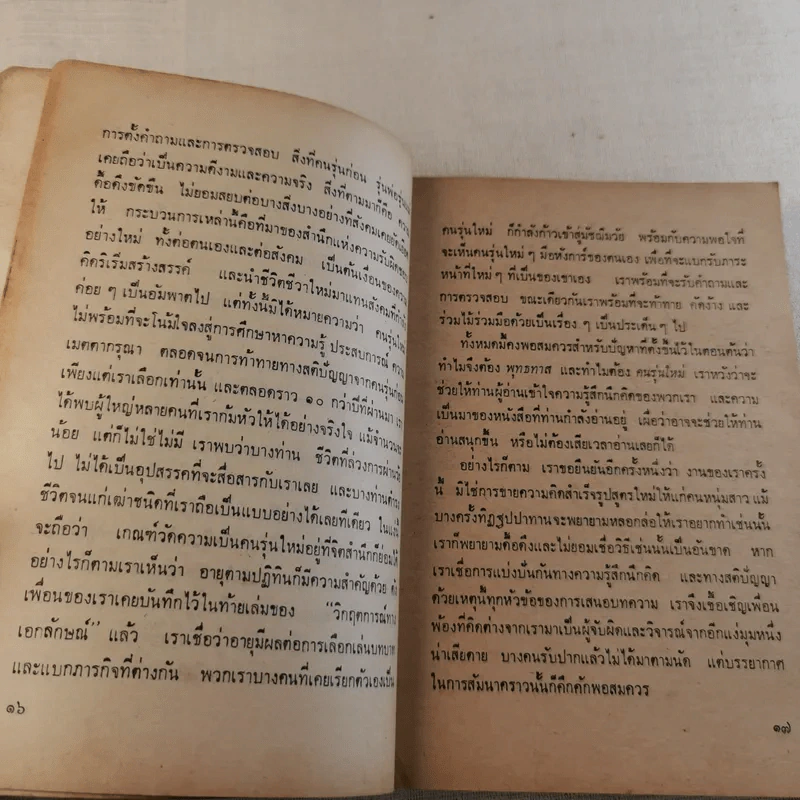 การตั้งคำถามและการตรวจสอบ สิ่งที่คนรุ่นก่อน รุ่นพ่อรุ่นแม่
เคยถือว่าเป็นความดีงามและความจริง สิ่งที่ตามมาก็คือ ความ
ดื้อดึงขัดขืน ไม่ยอมสยบต่อบางสิ่งบางอย่างที่สังคมเคยยัดเยียด
ให้ กระบวนการเหล่านี้คือที่มาของสำนึกแห่งความรับผิดชอบ
อย่างใหม่ ทั้งต่อตนเองและต่อสังคม เป็นต้นเงื่อนของความ
คิดริเริ่มสร้างสรรค์ และนำชีวิตชีวาใหม่มาแทนสังคมที่กำลัง
ค่อย ๆ เป็นอัมพาตไป แต่ทั้งนี้มิได้หมายความว่า คนรุ่นใหม่
ไม่พร้อมที่จะโน้มใจลงสู่การศึกษาหาความรู้ ประสบการณ์ ความ
เมตตากรุณา ตลอดจนการท้าทายทางสติปัญญาจากคนรุ่นก่อน
เพียงแต่เราเลือกเท่านั้น และตลอดราว ๑๐ กว่าปีที่ผ่านมา เรา
ได้พบผู้ใหญ่หลายคนที่เราก้มหัวให้ได้อย่างจริงใจ แม้จำนวนจะ
น้อย แต่ก็ไม่ใช่ไม่มี เราพบว่าบางท่าน ชีวิตที่ล่วงการผ่านวัย
ไป ไม่ได้เป็นอุปสรรคที่จะสื่อสารกับเราเลย และบางท่านดำรง
ชีวิตจนแก่เฒ่าชนิดที่เราถือเป็นแบบอย่างได้เลยทีเดียว ในแง่นี้
จะถือว่า เกณฑ์วัดความเป็นคนรุ่นใหม่อยู่ที่จิตสำนึกก็ย่อมได้
อย่างไรก็ตามเราเห็นว่า อายุตามปฏิทินก็มีความสำคัญด้วย ดัง
เพื่อนของเราเคยบันทึกไว้ในท้ายเล่มของ “วิกฤตการณ์ทาง
เอกลักษณ์” แล้ว เราเชื่อว่าอายุมีผลต่อการเลือกเล่นบทบาท
และแบกภารกิจที่ต่างกัน พวกเราบางคนที่เคยเรียกตัวเองเป็น
๑๖
คนรุ่นใหม่ ก็กำลังก้าวเข้าสู่มัชฌิมวัย พร้อมกับความพอใจที่
จะเห็นคนรุ่นใหม่ ๆ มีอหังการ์ของตนเอง เพื่อที่จะแบกรับภาระ
หน้าที่ใหม่ ๆ ที่เป็นของเขาเอง เราพร้อมที่จะรับคำถามและ
การตรวจสอบ ขณะเดียวกันเราพร้อมที่จะท้าทาย คัดง้าง และ
ร่วมไม้ร่วมมือด้วยเป็นเรื่อง ๆ เป็นประเด็น ๆ ไป
ทั้งหมดนี้คงพอสมควรสำหรับปัญหาที่ตั้งขึ้นไว้ในตอนต้นว่า
ทำไมจึงต้อง พุทธทาส และทำไมต้อง คนรุ่นใหม่ เราหวังว่าจะ
ช่วยให้ท่านผู้อ่านเข้าใจความรู้สึกนึกคิดของพวกเรา และความ
เป็นมาของหนังสือที่ท่านกำลังอ่านอยู่ เผื่อว่าอาจจะช่วยให้ท่าน
อ่านสนุกขึ้น หรือไม่ต้องเสียเวลาอ่านเสียก็ได้
อย่างไรก็ตาม เราขอยืนยันอีกครั้งหนึ่งว่า งานของเราครั้ง
นี้ มิใช่การขายความคิดสำเร็จรูปสูตรใหม่ให้แก่คนหนุ่มสาว แม้
บางครั้งทิฏฐุปปาทานจะพยายามหลอกล่อให้เราอยากทำเช่นนั้น
เราก็พยายามดื้อดึงและไม่ยอมเชื่อวิธีเช่นนั้นเป็นอันขาด หาก
เราเชื่อการแบ่งปันกันทางความรู้สึกนึกคิด และทางสติปัญญา
ด้วยเหตุนี้ทุกหัวข้อของการเสนอบทความ เราจึงเชื้อเชิญเพื่อน
พ้องที่คิดต่างจากเรามาเป็นผู้จับผิดและวิจารณ์จากอีกแง่มุมหนึ่ง
น่าเสียดาย บางคนรับปากแล้วไม่ได้มาตามนัด แต่บรรยากาศ
ในการสัมนาคราวนั้นก็คึกคักพอสมควร
๑๗